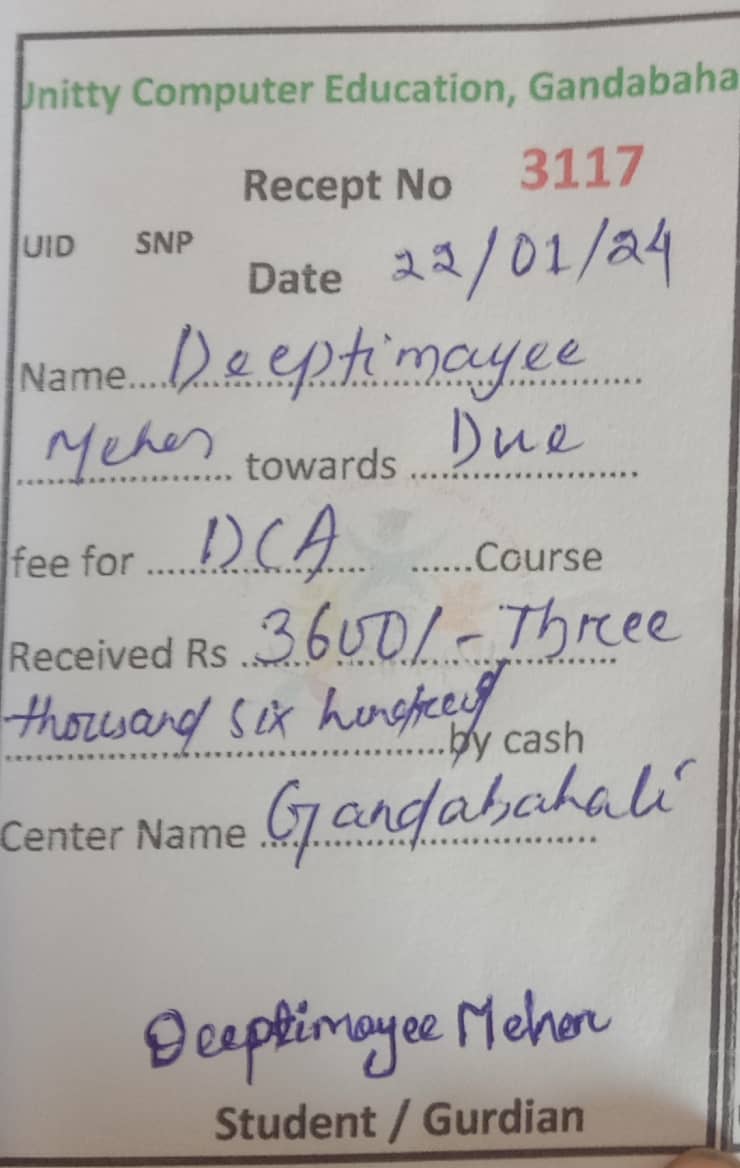 Unitty Computer Education, Gandabaha
Recept No 3117
UID SNP
Date 22/01/24
Name....Deeptimayee
Meher towards Due
fee for DCA ......Course
Received Rs 3600/- Three
thousand six hundred
by cash
Center Name Gandabahali
Deeptimayee Meher
Student / Gurdian